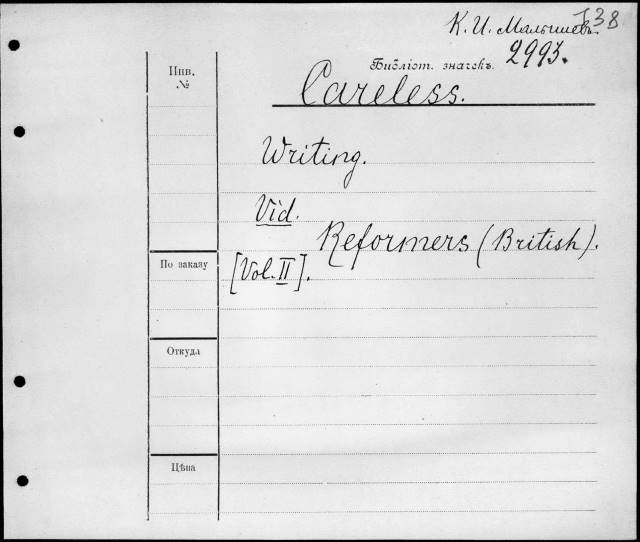 К. И. Малышевъ. 738
Библіот. значекъ. 2993.
Инв.
№
Careless.
Writing.
Vid.
Reformers (British).
[Vol. II].
По заказу
Откуда
Цѣна